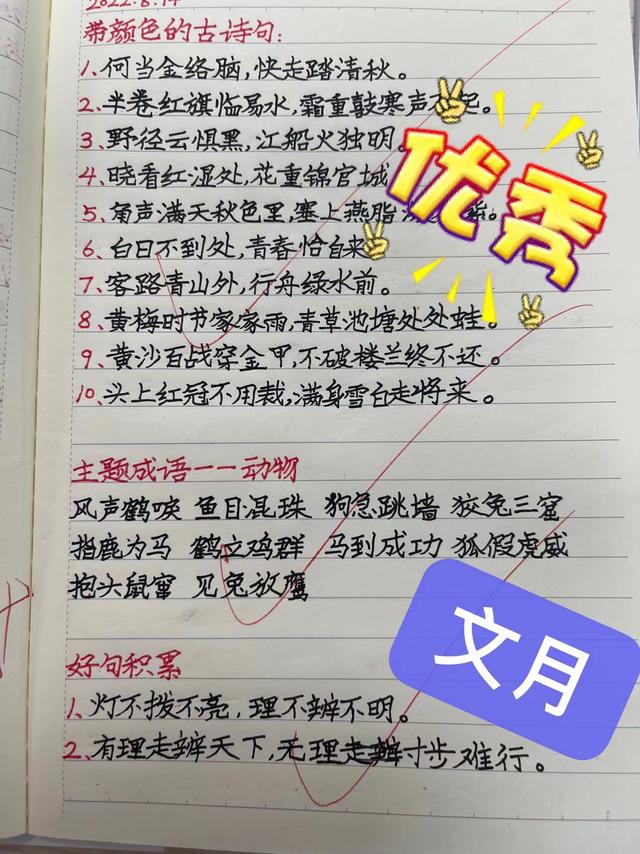 2022.8.14
带颜色的古诗句:
1、何当金络脑,快走踏清秋。
2、半卷红旗临易水,霜重鼓寒声不起。
3、野径云惧黑,江船火独明。
4、晓看红湿处,花重锦官城
5、角声满天秋色里,塞上燕脂 紫。
6、白日不到处,青春恰自来
7、客路青山外,行舟绿水前。
8、黄梅时节家家雨,青草池塘处处蛙。
9、黄沙百战穿金甲,不破楼兰终不还。
10、头上红冠不用裁,满身雪白走将来。
优秀
主题成语——动物
风声鹤唳 鱼目混珠 狗急跳墙 狡兔三窟
指鹿为马 鹤立鸡群 马到成功 狐假虎威
抱头鼠窜 见兔放鹰
文月
好句积累
1、灯不拨不亮,理不辨不明。
2、有理走辨天下,无理走辨寸步难行。